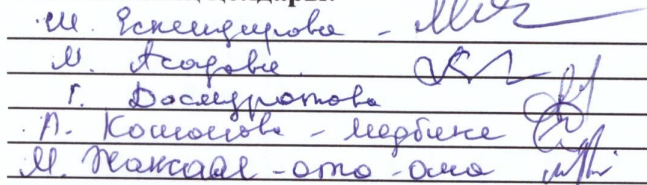 Ш. Ескендирова -
М. Асадова
Г. Досмуратова
А. Косионова - медбике
М. Жаксает - ата - ана